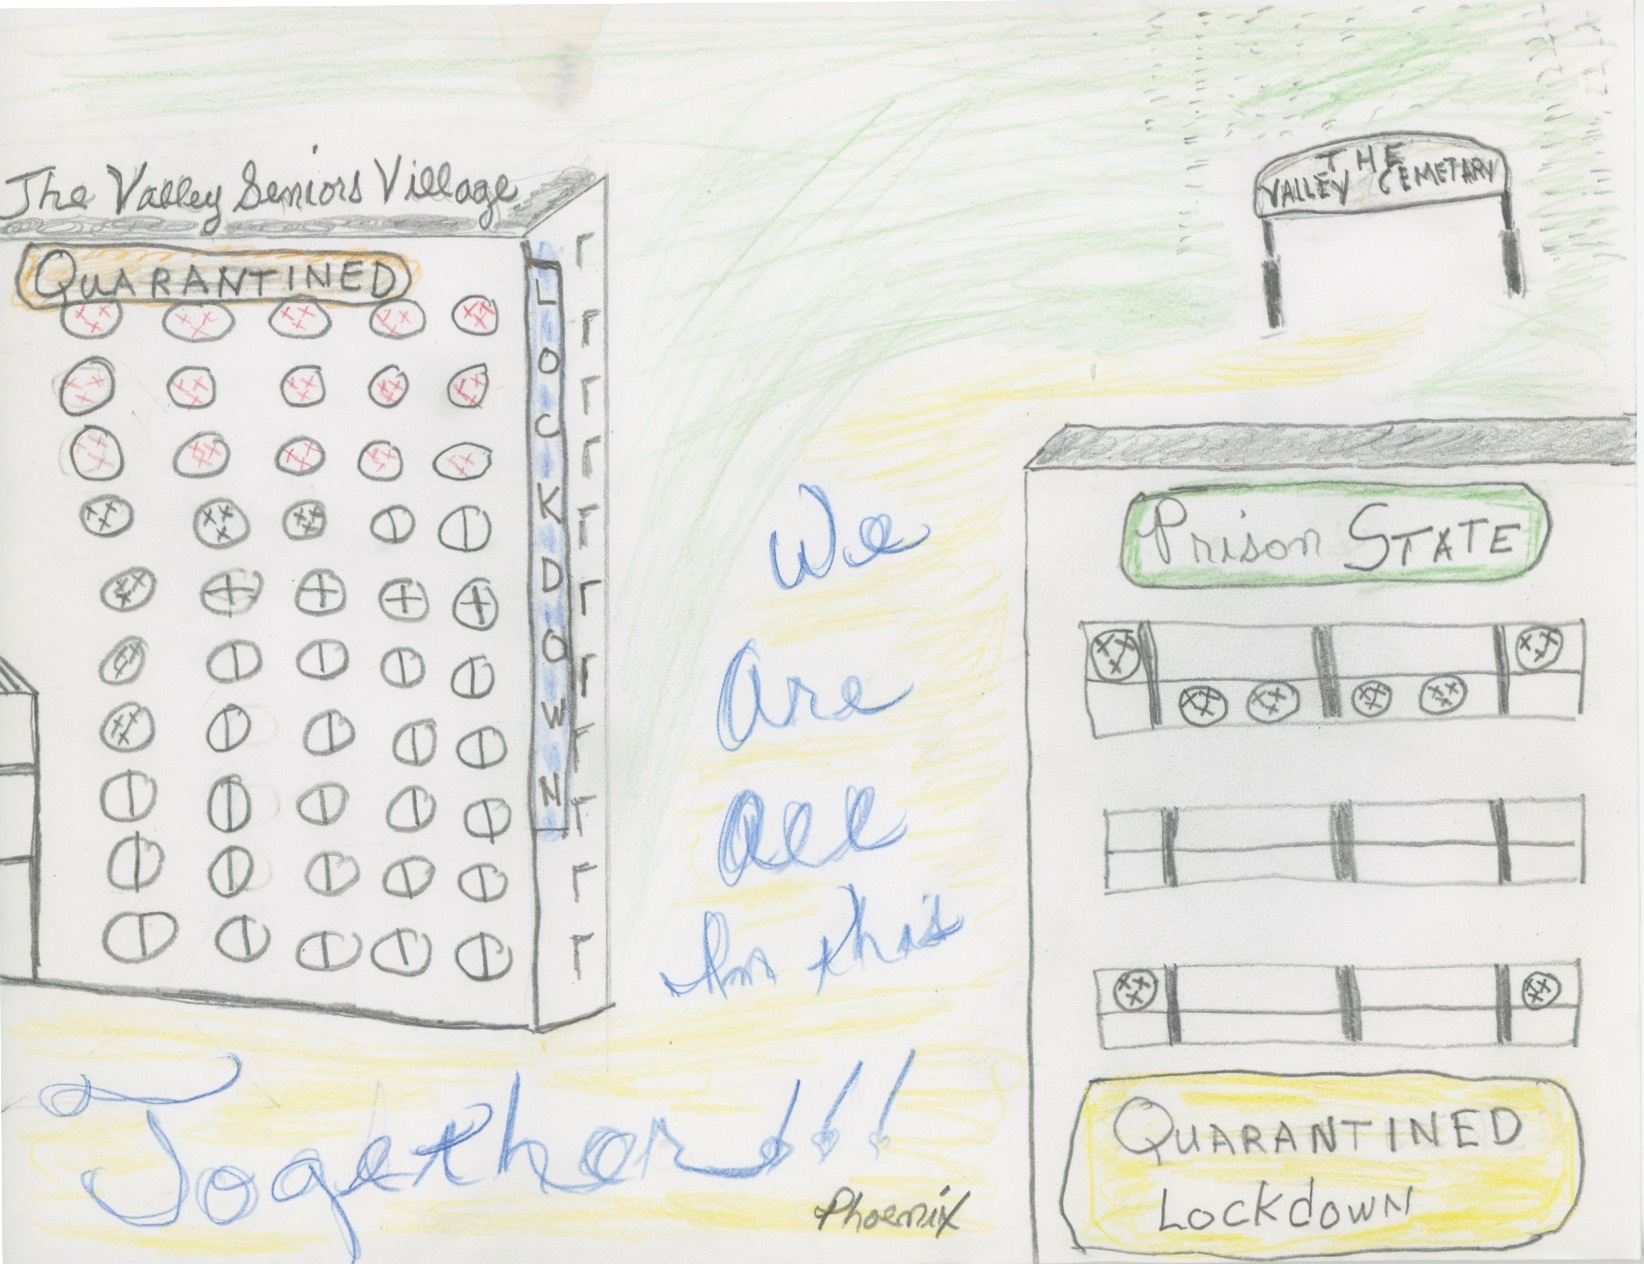 The Valley Seniors Village
QUARANTINED
LOCKDOWN
THE
VALLEY CEMETARY
Prison STATE
We
Are
All
In this
Together!!!
QUARANTINED
LOCKDOWN
Phoenix